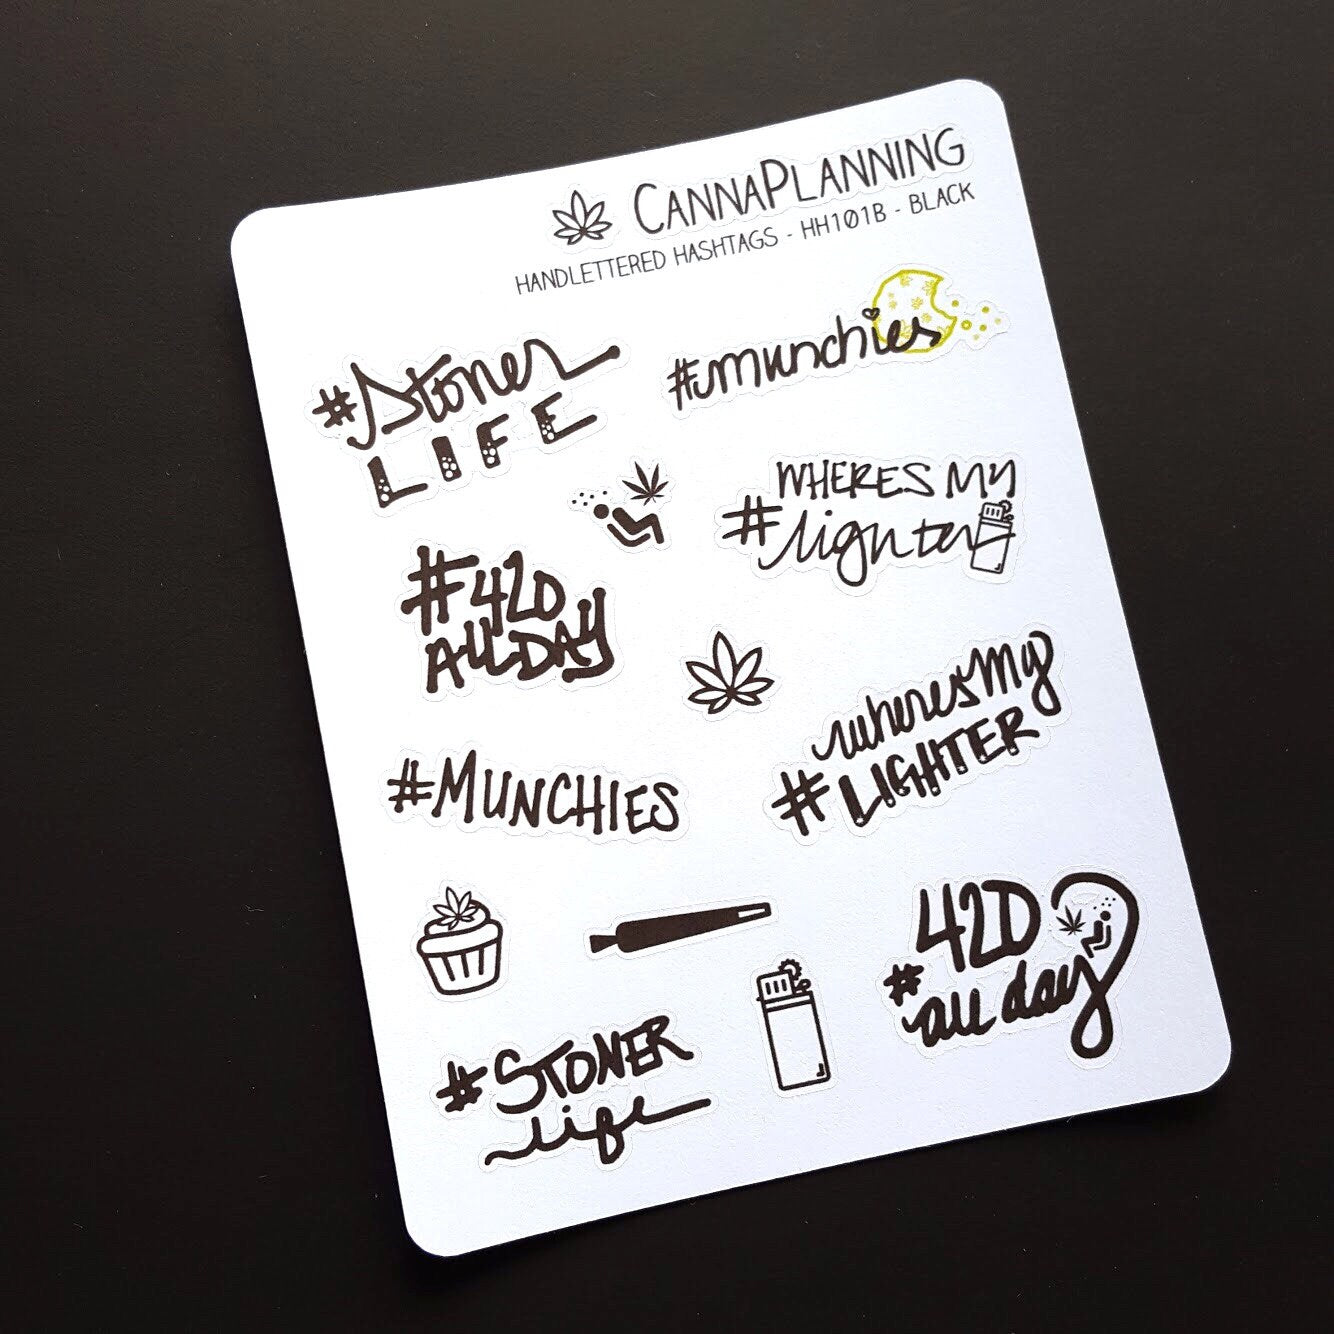 CANNAPLANNING
HANDLETTERED HASHTAGS - HH101B - BLACK
#Stoner
LIFE
#munchies
WHERES MY
#lighter
#420
ALL DAY
wheres my
#LIGHTER
#MUNCHIES
420
#all day
#STONER
life